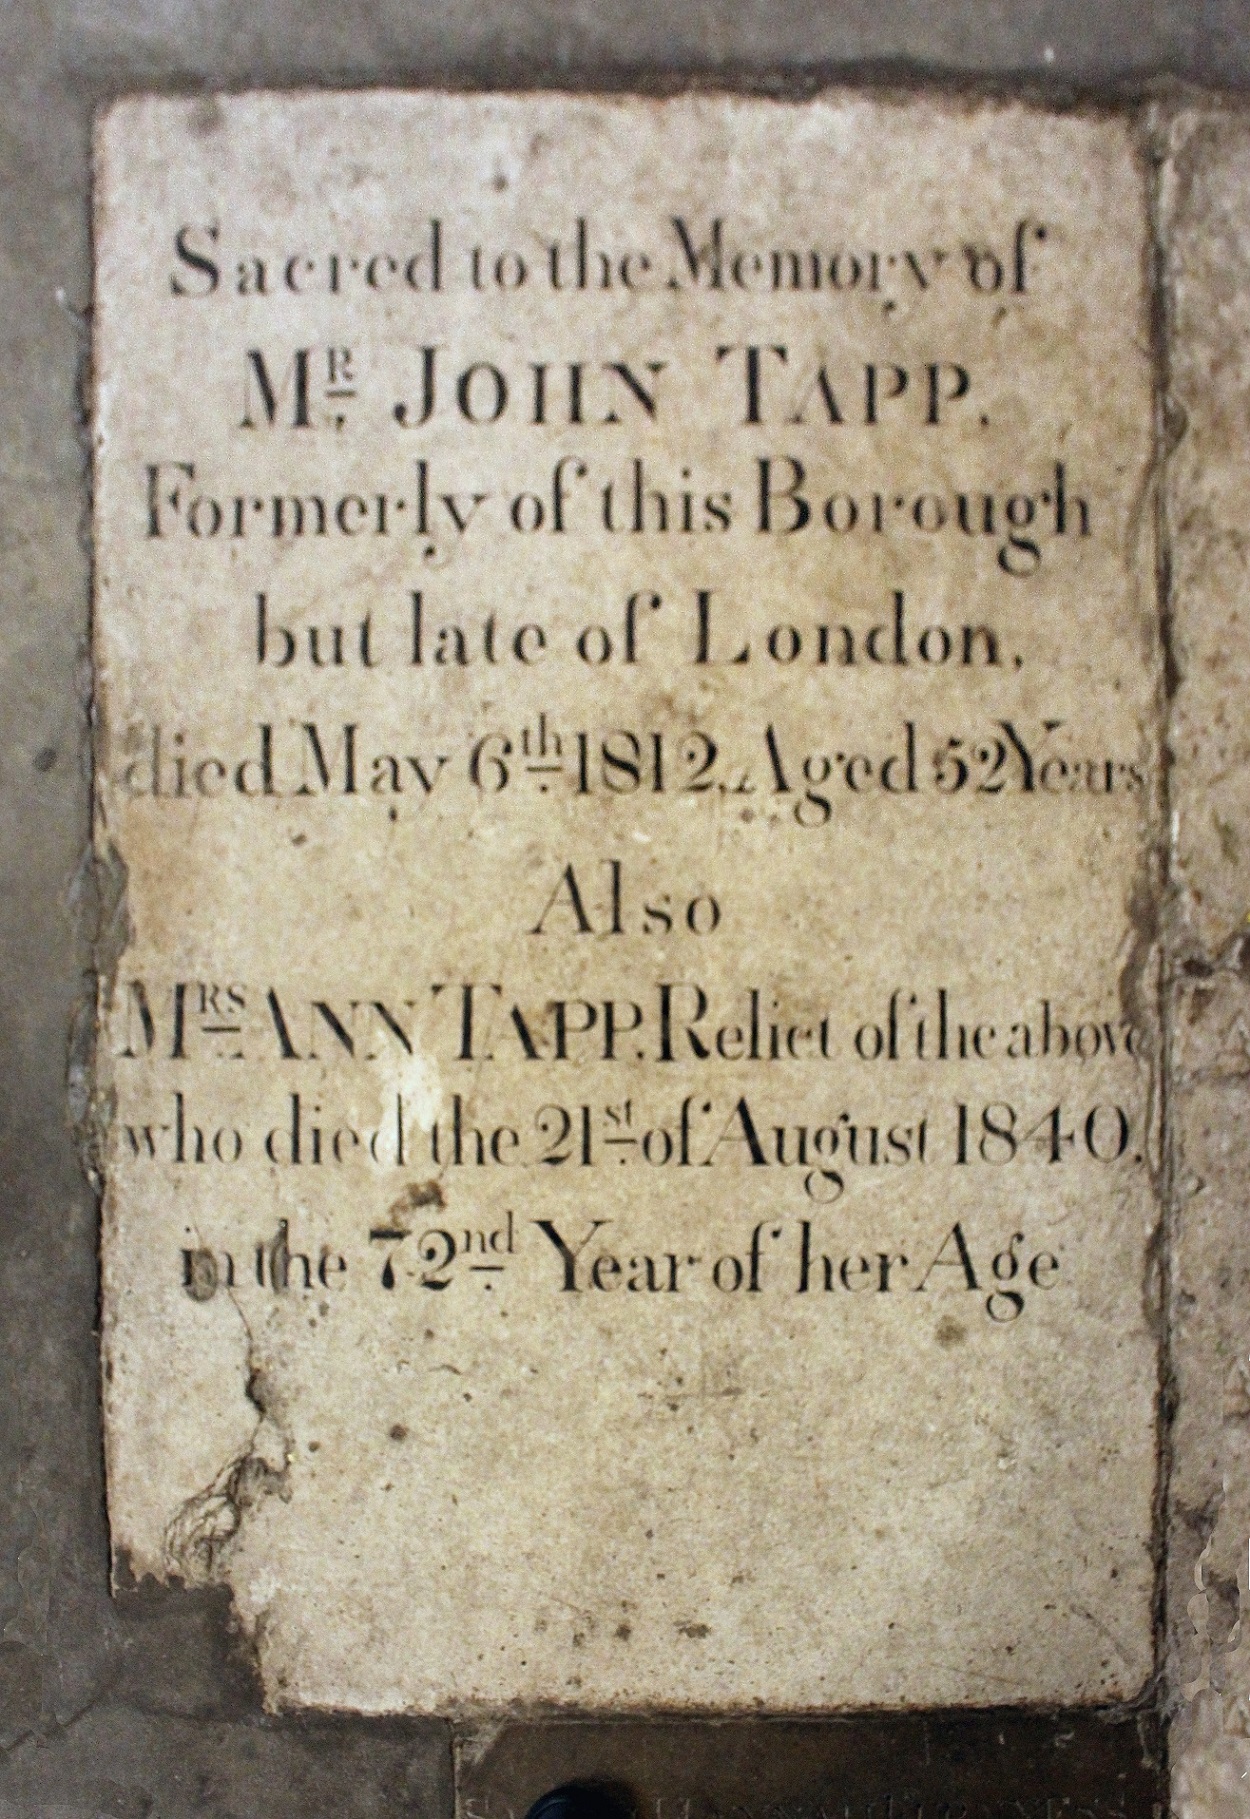 Sacred to the Memory of
MR. JOHN TAPP.
Formerly of this Borough
but late of London,
died May 6th 1812, Aged 52 Years
Also
MRS ANN TAPP. Relict of the above
who died the 21st of August 1840,
in the 72nd Year of her Age